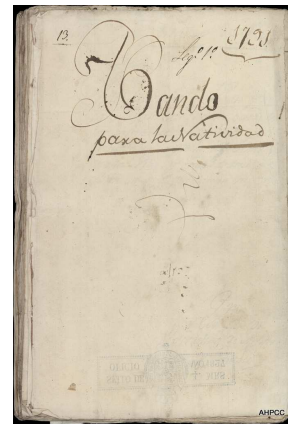 13.
Leg.º 1º 1791
Bando
para la Natividad
AHPCC